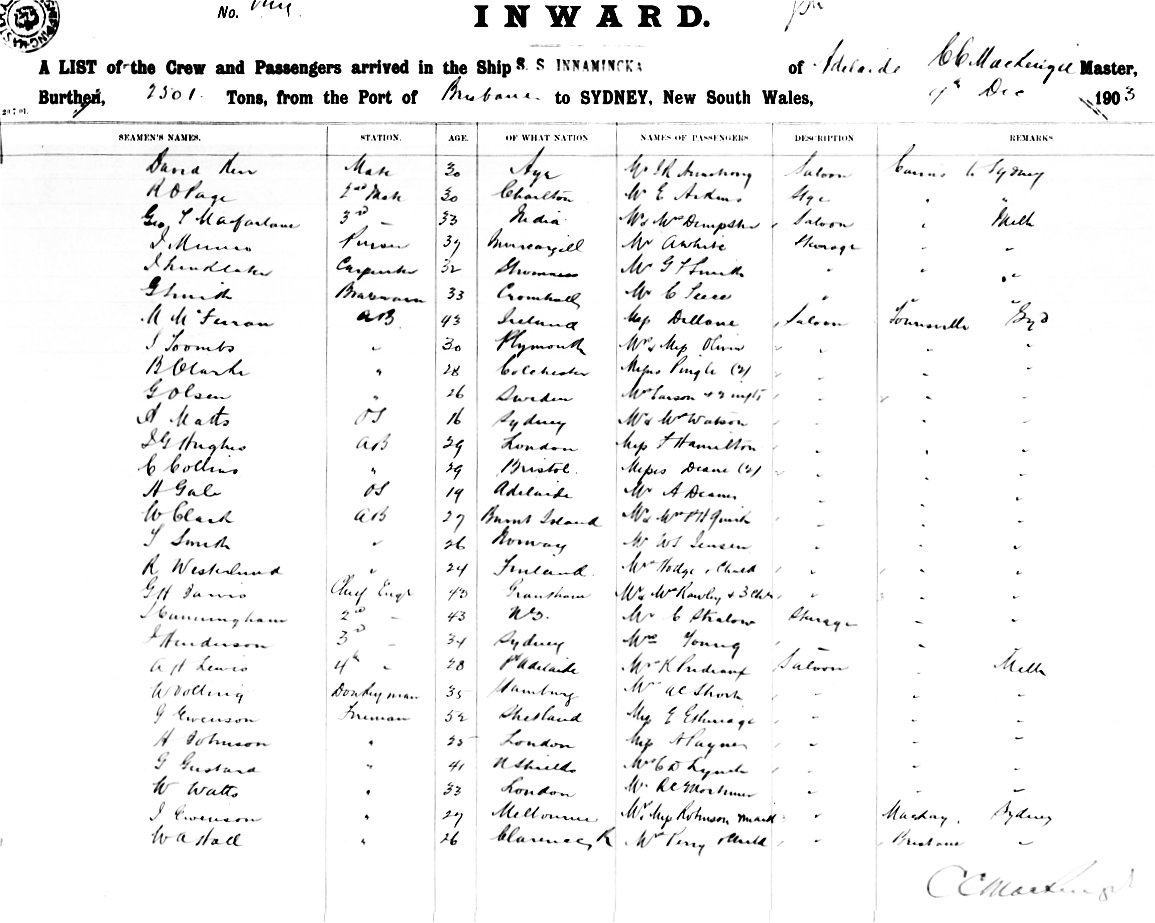 No.
INWARD.
A LIST of the Crew and Passengers arrived in the Ship S. S INNAMINCKA of Adelaide C C Mackenzie Master,
Burthen, 2501 Tons, from the Port of Brisbane to SYDNEY, New South Wales, 9th Dec 1903
SEAMEN'S NAMES. STATION. AGE. OF WHAT NATION NAMES OF PASSENGERS DESCRIPTION REMARKS
David Kerr Mate 30 Ayr Mr J R Armstrong Saloon Cairns to Sydney
R D Page 2nd Mate 30 Charlton Mr E Stge " "
Geo S Macfarlane 3rd " 33 India Mr & Mrs Dempster Saloon " Melb
J Munro Purser 39 Invercargill Mr A White Steerage " "
Carpenter 32 Stromness Mr G F Smith " "
G Smith 33 Mr C " "
M McFerran AB 43 Ireland Miss Dillane Saloon Townsville Syd
J Toombs " 30 Plymouth Mr & Miss Oliver " " "
B Clarke " 28 Colchester Misses Pingle (2) " " "
G Olsen " 26 Sweden Mrs Carson & 2 " " "
A Matts OS 16 Sydney Mr & Mrs Watson " " "
J G Hughes AB 29 London Miss F Hamilton " " "
C Collins " 29 Bristol Misses Deane (2) " " "
A Gale OS 19 Adelaide Mr A " " "
W Clark AB 27 Burnt Island Mr & Mrs " " "
S Smith " 26 Norway Mr W S Jensen " " "
R Westerlund " 24 Finland Mrs Hodge & Child " " "
G H Davis Chief Engr 43 Grantham Mr & Mrs Rawley & 3 Chn " " "
J Cunningham 2nd " 43 N.S. Mr C Stralow Steerage " "
J Henderson 3rd " 34 Sydney Mrs Young " " "
A H Lewis 4th " 28 Pt Adelaide Mr K Saloon " Melb
W Dolling Donkeyman 35 Hamburg Mr A C Short " " "
G Ewenson Fireman 52 Shetland Miss E " " "
H Johnson " 25 London Miss A Payner " " "
G Gustard " 41 N Shields Mr C D Lynch " " "
W Watts " 33 London Mr R C Mortimer " " "
J Ewenson " 29 Melbourne Mr & Miss Robinson maid " Mackay Sydney
W A Hall " 26 Clarence R Mrs Perry & Child " Brisbane "
C C Mackenzie